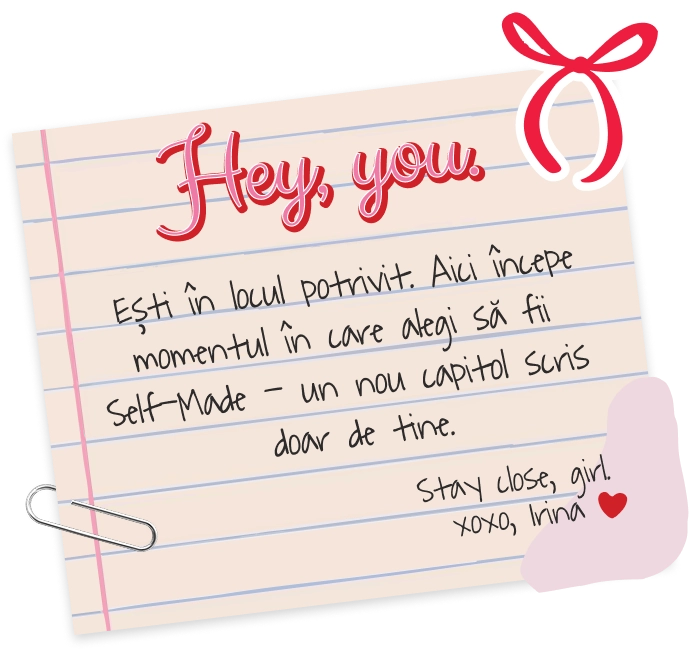 Hey, you.
Ești în locul potrivit. Aici începe
momentul în care alegi să fii
Self-Made - un nou capitol scris
doar de tine.
Stay close, girl.
xoxo, Irina